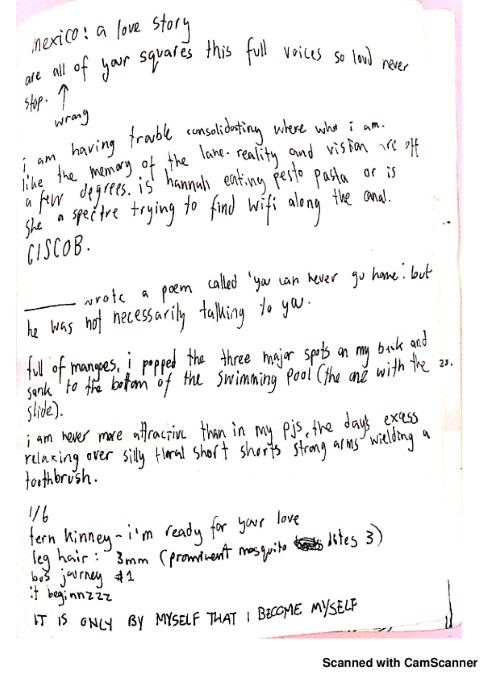 mexico: a love story
are all of your squares this full voices so loud never
stop. ↑
wrong
i am having trouble consolidating where who i am.
like the memory of the lane. reality and vision are off
a few degrees. is hannah eating pesto pasta or is
she a spectre trying to find wifi along the canal.
CISCOB.
______ wrote a poem called 'you can never go home'. but
he was not necessarily talking to you.
full of mangoes, i popped the three major spots on my back and
sank to the bottom of the swimming pool (the one with the
slide).
i am never more attractive than in my pjs, the days excess
relaxing over silly floral short shorts strong arms wielding a
toothbrush.
1/6
fern kinney - i'm ready for your love
leg hair: 3mm (prominent mosquito bites 3)
bus journey #1
it beginnzzz
IT IS ONLY BY MYSELF THAT I BECOME MYSELF
Scanned with CamScanner